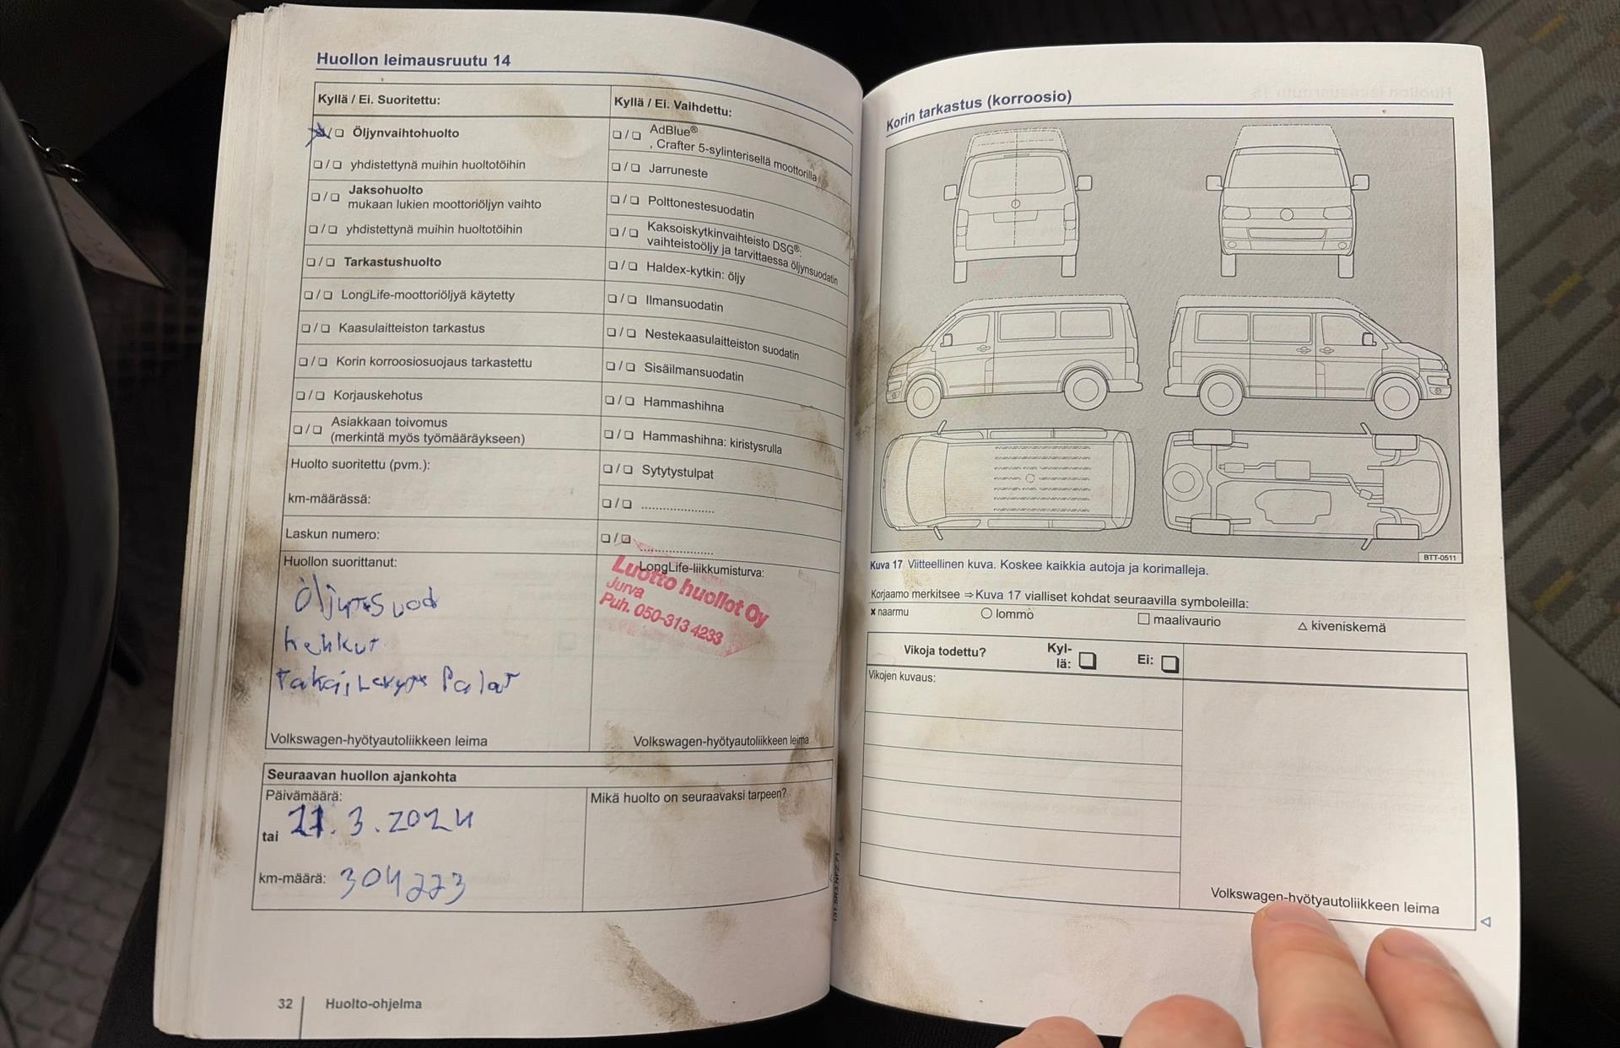 Huollon leimausruutu 14
Kyllä / Ei. Suoritettu:
❏/❏ Öljynvaihtohuolto
❏/❏ yhdistettynä muihin huoltotöihin
❏/❏ Jaksohuolto
mukaan lukien moottoriöljyn vaihto
❏/❏ yhdistettynä muihin huoltotöihin
❏/❏ Tarkastushuolto
❏/❏ LongLife-moottoriöljyä käytetty
❏/❏ Kaasulaitteiston tarkastus
❏/❏ Korin korroosiosuojaus tarkastettu
❏/❏ Korjauskehotus
❏/❏ Asiakkaan toivomus
(merkintä myös työmääräykseen)
Huolto suoritettu (pvm.):
km-määrässä:
Laskun numero:
Huollon suorittanut:
Öljy+suod
hehkut
takajLevyt+Palat
Volkswagen-hyötyautoliikkeen leima
Kyllä / Ei. Vaihdettu:
❏/❏ AdBlue®
, Crafter 5-sylinterisellä moottorilla
❏/❏ Jarruneste
❏/❏ Polttonestesuodatin
❏/❏ Kaksoiskytkinvaihteisto DSG®:
vaihteistoöljy ja tarvittaessa öljynsuodatin
❏/❏ Haldex-kytkin: öljy
❏/❏ Ilmansuodatin
❏/❏ Nestekaasulaitteiston suodatin
❏/❏ Sisäilmansuodatin
❏/❏ Hammashihna
❏/❏ Hammashihna: kiristysrulla
❏/❏ Sytytystulpat
❏/❏ ....................
❏/❏ ....................
LongLife-liikkumisturva:
Luotto huollot Oy
Jurva
Puh. 050-313 4233
Volkswagen-hyötyautoliikkeen leima
Seuraavan huollon ajankohta
Päivämäärä:
tai 21.3.2024
km-määrä: 304223
Mikä huolto on seuraavaksi tarpeen?
32 Huolto-ohjelma
Korin tarkastus (korroosio)
BTT-0511
Kuva 17 Viitteellinen kuva. Koskee kaikkia autoja ja korimalleja.
Korjaamo merkitsee ⇒ Kuva 17 vialliset kohdat seuraavilla symboleilla:
x naarmu ○ lommo □ maalivaurio △ kiveniskemä
Vikoja todettu? Kyl-
lä: ❏ Ei: ❏
Vikojen kuvaus:
Volkswagen-hyötyautoliikkeen leima